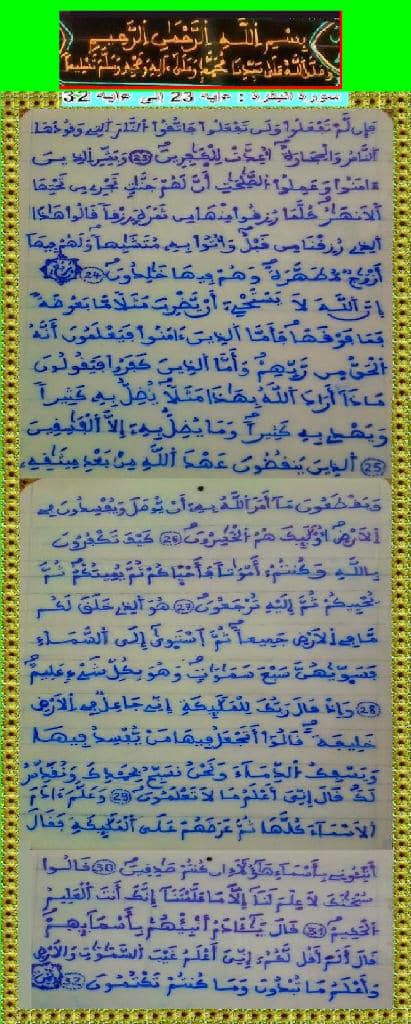 بسم الله الرحمن الرحيم
وصلى الله على سيدنا محمد وعلى آله وصحبه وسلم تسليما
سورة البقرة : ءاية 23 إلى ءاية 32
فإن لم تفعلوا ولن تفعلوا فاتقوا النار التي وقودها
الناس والحجارة أعدت للكافرين 23 وبشر الذين
ءامنوا وعملوا الصلحت أن لهم جنت تجري من تحتها
الانهر كلما رزقوا منها من ثمرة رزقا قالوا هذا
الذي رزقنا من قبل وأتوا به متشبها ولهم فيها
أزوج مطهرة وهم فيها خلدون 24
إن الله لا يستحي أن يضرب مثلا ما بعوضة
فما فوقها فأما الذين ءامنوا فيعلمون أنه
الحق من ربهم وأما الذين كفروا فيقولون
ماذا أراد الله بهذا مثلا يضل به كثيرا
ويهدي به كثيرا وما يضل به إلا الفسقين
25 الذين ينقضون عهد الله من بعد ميثقه
ويقطعون ما أمر الله به أن يوصل ويفسدون في
الارض أولئك هم الخسرون 26 كيف تكفرون
بالله وكنتم أموتا فأحياكم ثم يميتكم ثم
يحييكم ثم إليه ترجعون 27 هو الذي خلق لكم
ما في الارض جميعا ثم استوى إلى السماء
فسويهن سبع سموت وهو بكل شيء عليم
28 وإذ قال ربك للملئكة إني جاعل في الارض
خليفة قالوا أتجعل فيها من يفسد فيها
ويسفك الدماء ونحن نسبح بحمدك ونقدس
لك قال إني أعلم ما لا تعلمون 29 وعلم ءادم
الاسماء كلها ثم عرضهم على الملئكة فقال
أنبئوني بأسماء هؤلاء ان كنتم صدقين 30 قالوا
سبحنك لا علم لنا إلا ما علمتنا إنك أنت العليم
الحكيم 31 قال يئادم أنبئهم بأسمائهم
قال ألم أقل لكم إني أعلم غيب السموت والارض
وأعلم ما تبدون وما كنتم تكتمون 32